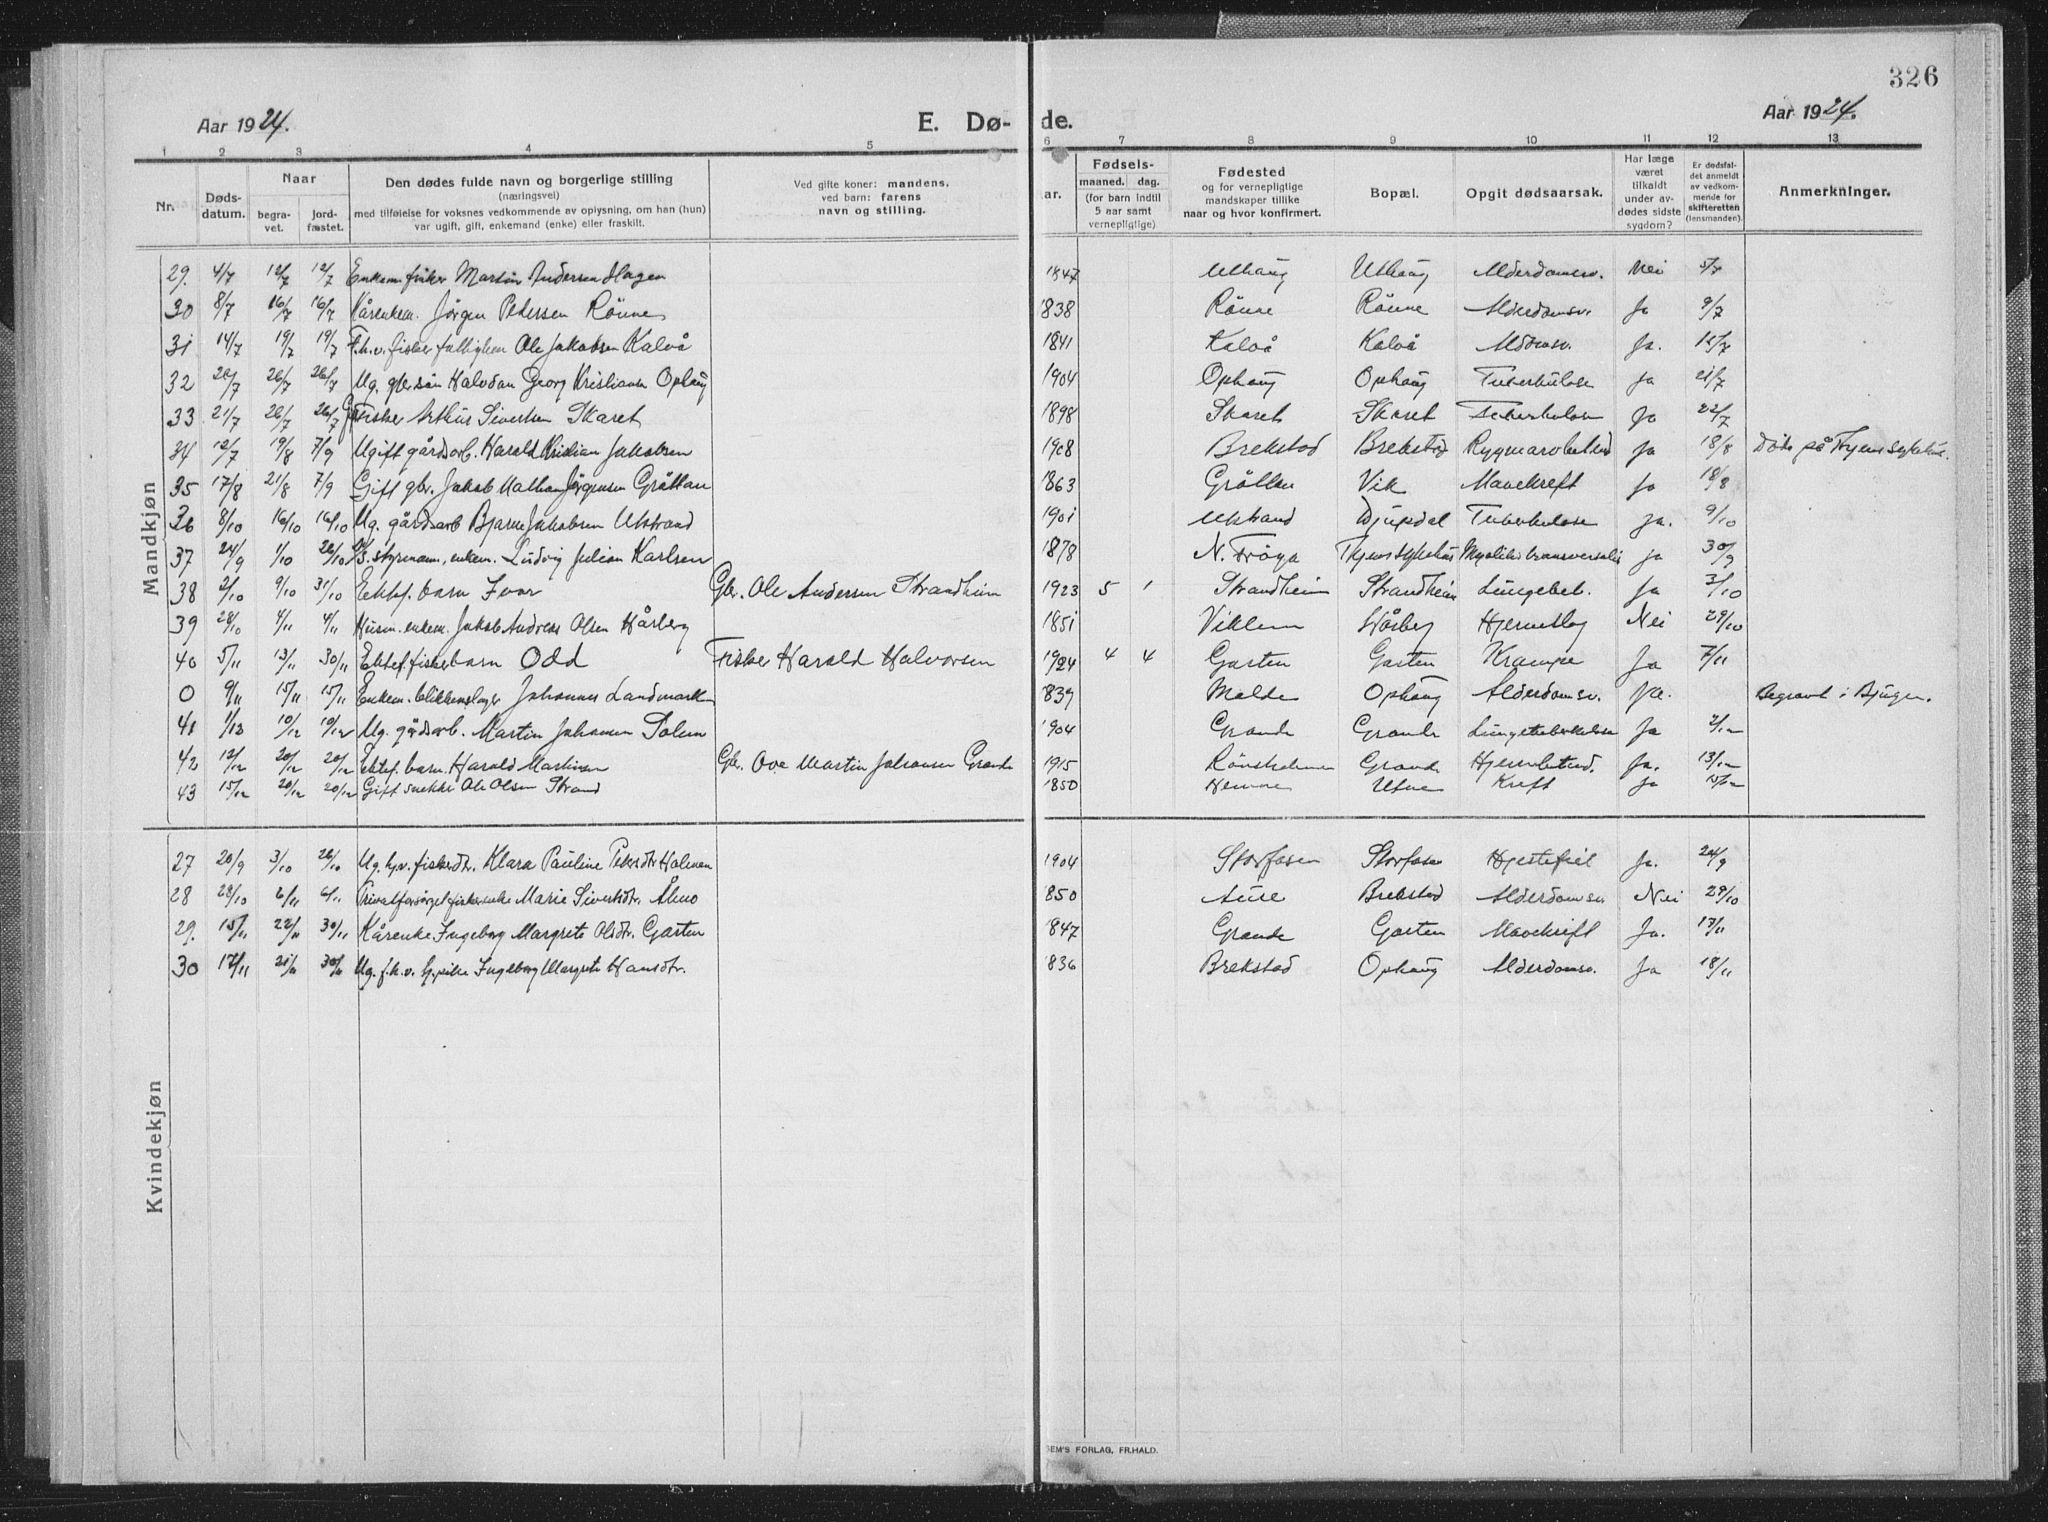 326
Aar 1924. E. Dø- de. Aar 1924.
1 2 3 4 5 6 7 8 9 10 11 12 13
Nr.
Døds-
datum.
Naar
begra-
vet.
jord-
fæstet.
Den dødes fulde navn og borgerlige stilling
(næringsvei)
med tilføielse for voksnes vedkommende av oplysning, om han (hun)
var ugift, gift, enkemand (enke) eller fraskilt.
Ved gifte koner: mandens.
ved barn: farens
navn og stilling.
ar.
Fødsels-
maaned. dag.
(for barn indtil
5 aar samt
vernepligtige)
Fødested
og for vernepligtige
mandskaper tillike
naar og hvor konfirmert.
Bopæl.
Opgit dødsaarsak.
Har læge
været
tilkaldt
under av-
dødes sidste
sygdom?
Er dødsfal-
det anmeldt
av vedkom-
mende for
skifteretten
(lensmanden).
Anmerkninger.
Mandkjøn
29. 4/7 12/7 12/7 Enkem. fisker Martin Andersen Hagen 1847 Uthaug Uthaug Alderdomsv. Nei 5/7
30 8/7 16/7 16/7 Kårenkem. Jörgen Petersen Rönne 1838 Rönne Rönne Alderdomsv. Ja 9/7
31 14/7 19/7 19/7 F.h.v. fisker fattiglem Ole Jakobsen Kalvå 1841 Kalvå Kalvå Ja. 15/7
32 20/7 26/7 26/7 Ug. gbr.sön Halvdan Georg Kristiansen Ophaug 1904 Ophaug Ophaug Tuberkulose ja 21/7
33 21/7 26/7 26/7 Fisker Arthur Sivertsen Skaret 1898 Skaret Skaret Tuberkulose Ja 22/7
34 12/7 19/8 7/9 Ugift gårdsarb. Harald Kristian Jakobsen 1908 Brekstad Brekstad Rygmarvbetend ja 18/8 Döde på Trjems sykehus.
35 17/8 21/8 7/9 Gift gbr. Jakob Mathias Jörgensen Gröttan 1863 Gröttan Vik Mavekreft Ja 18/8
36 8/10 16/10 16/10 Ug. gårdsarb Bjarne Jakobsen Utstrand 1901 Utstrand Djupdal Tuberkulose Ja. 9/10
37 24/9 1/10 26/10 styrmann, enkem. Ludvig Julian Karlsen 1878 N. Fröya Trjems sykehus Myelitis transversalis ja 30/9
38 2/10 9/10 31/10 Ektef. barn Ivar Gbr. Ole Andersen Strandheim 1923 5 1 Strandheim Strandheim Lungebet. Ja 3/10
39 28/10 4/11 4/11 Husm. enkem. Jakob Andreas Olsen Hårberg 1851 Viklem Hårberg Hjerneslag Nei 29/10
40 5/11 13/11 30/11 Ektef. fiskebarn Odd Fisker Harald Halvorsen 1924 4 4 Garten Garten Krampe Ja 7/11
0 9/11 15/11 15/11 Enkem. blikkenslager Johannes Landmark 839 Molde Ophaug Alderdomsv. Ja. Begravt i Bjugn.
41 1/12 10/12 10/12 Ug. gårdsarb. Martin Johansen Solem 1904 Grande Grande Lungetuberkulose Ja 2/12
42 12/12 20/12 20/12 Ektef. barn. Harald Martinsen Gbr. Ove Martin Johansen Grande 1915 Grande Hjernebetend. Ja. 13/12
43 15/12 20/12 20/12 Gift snekker Ole Olsen Strand 1850 Hemne Kreft Ja 15/12
Kvindekjøn
27 20/9 3/10 26/10 Ug. hjv. fiskerdtr. Klara Pauline Petersdtr. Holmen 1904 Storfosen Storfosen Hjertefeil Ja. 24/9
28 28/10 6/11 6/11 Privatforsörget fiskerenke Marie Sivertsdtr. Ålmo 850 Aure Brekstad Alderdomsv Nei 29/10
29. 15/11 22/11 30/11 Kårenke Ingeborg Margrete Olsdtr. Garten 847 Grande Garten Mavekreft Ja. 17/11
30 17/11 21/11 30/11 Ug. f.h.v. Ingeborg Margrete Hansdtr. 836 Brekstad Ophaug Alderdomsv. Ja 18/11
SEM'S FORLAG, FR.HALD.